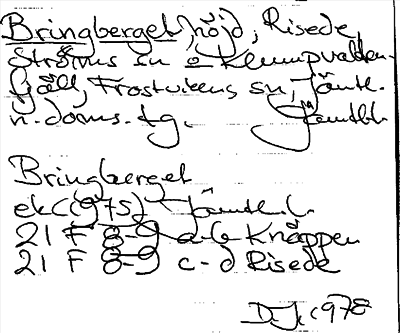 Bringberget, höjd, Risede,
Ströms sn o Klumpvatten-
fjäll, Frostvikens sn, Jämtl.
n. doms. tg. Jämtl.l.
Bringberget
ek (1975) Jämtl.l.
21 F 8-9 a-b Knäppen
21 F 8-9 c-d Risede
D.J. 1978